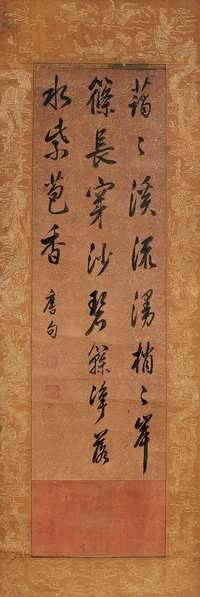 藹〻溪流漫梢〻岸
篠長穿沙碧簳净落
水紫苞香
唐句